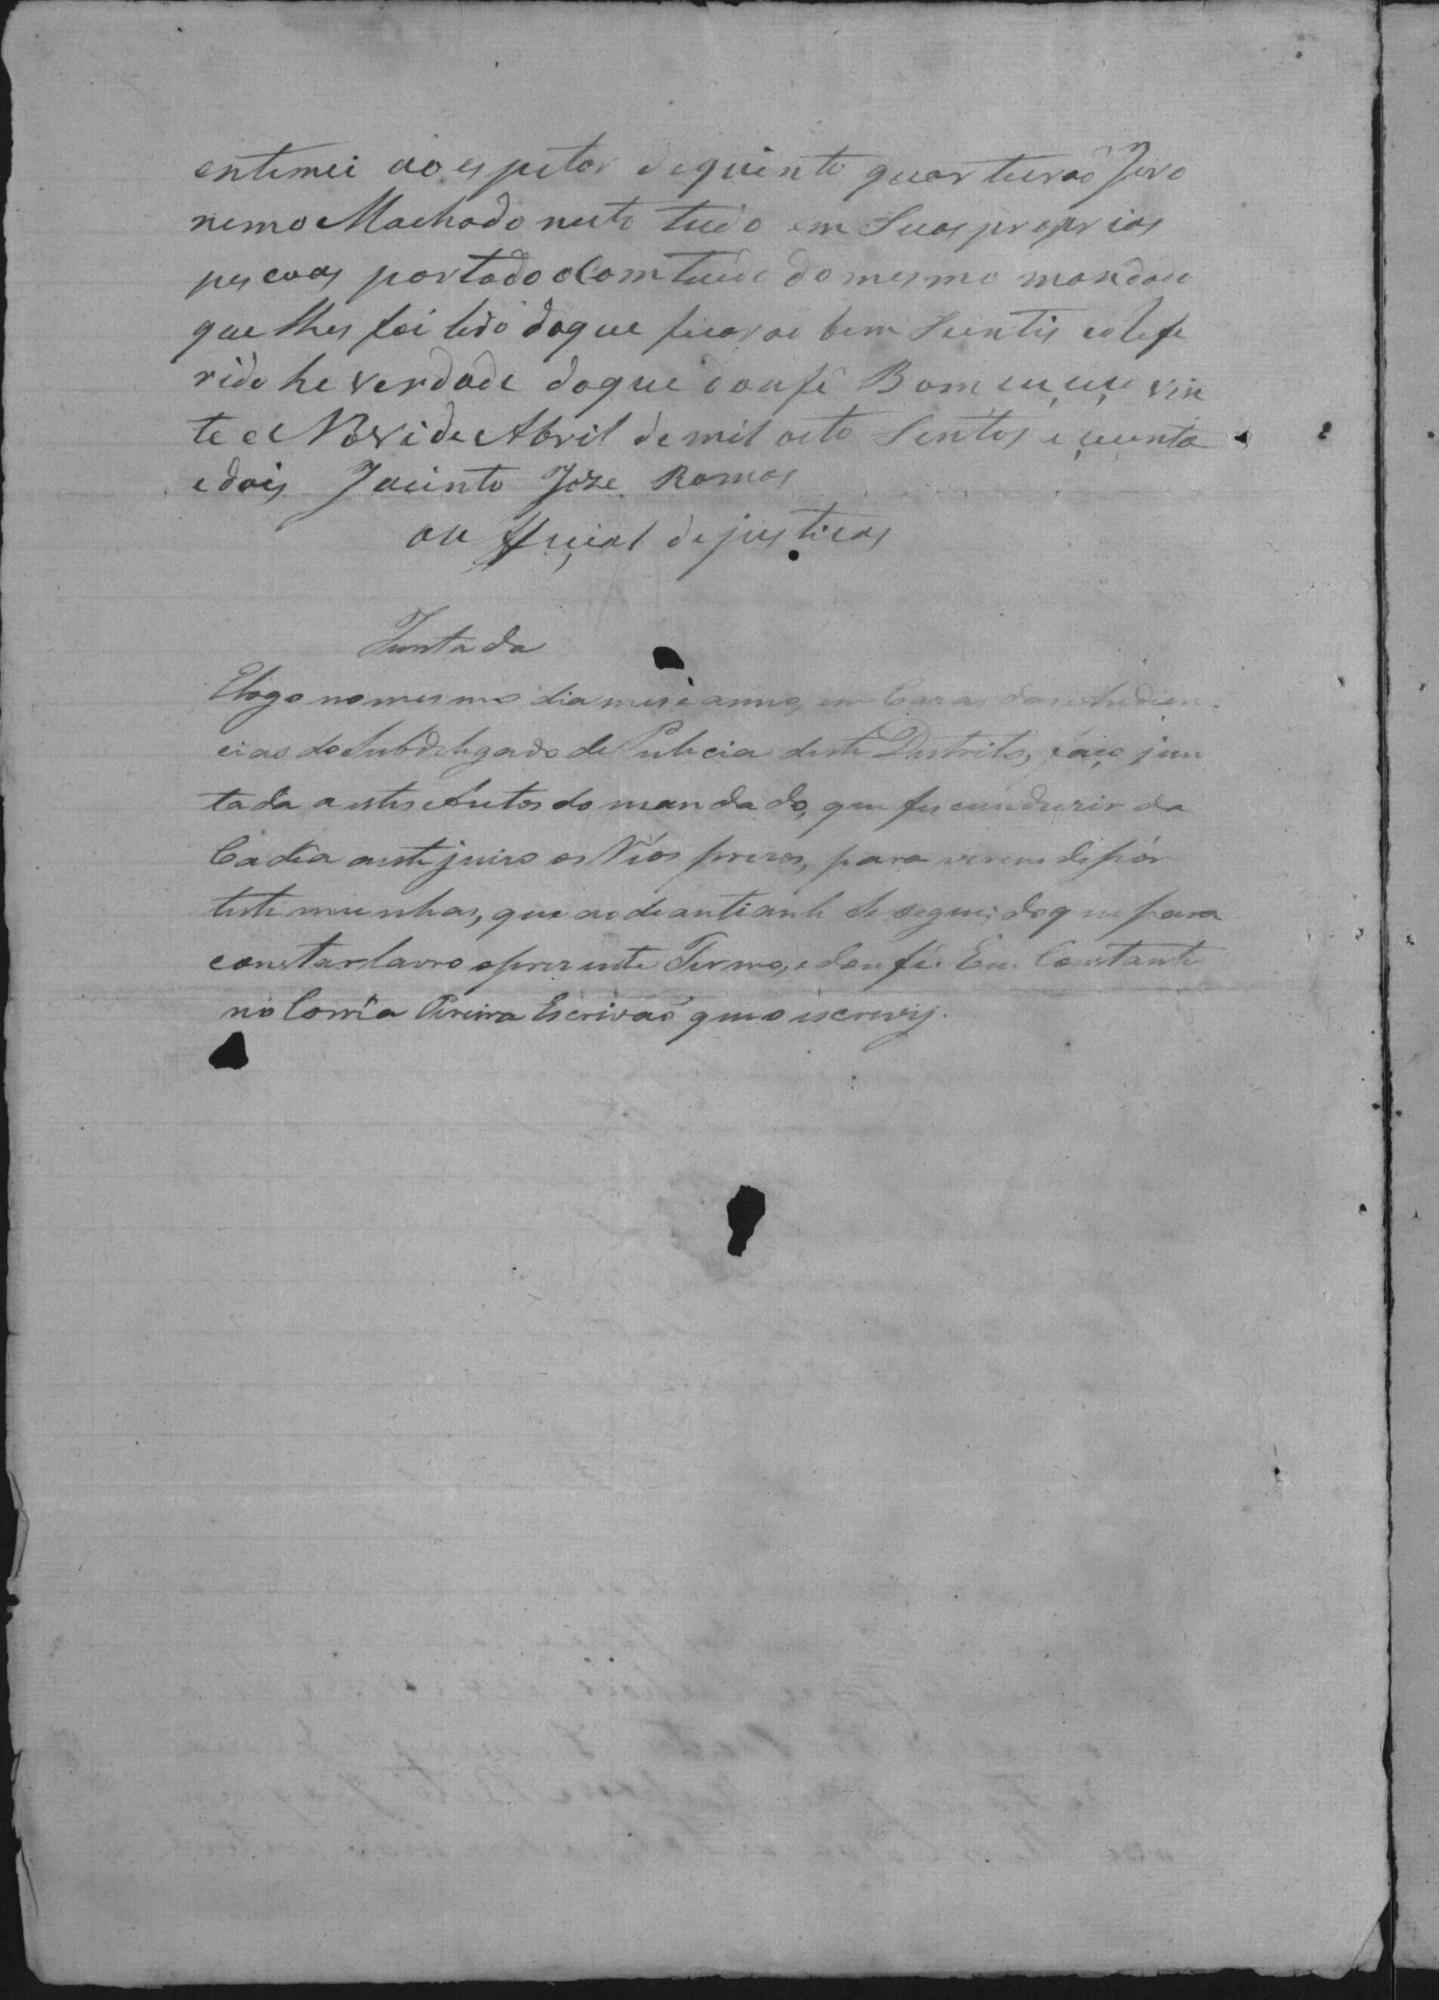 entimei ao espetor dequinto quarteirão Jero
nemo Machado neto tudo em Suas proprias
pecoas portodo o Comtiudo do mesmo mandado
que lhes foi lido doque ficarão bem Sientis eo Refe
rido he verdade doque dou fé Bom çuçeço vin
te e Novi de Abril de mil oito Sentos e çecenta
e dois Jacinto Joze Ramos
ou ffiçial de justicas
Juntada
E logo no mesmo dia mes e anno, em Cazas das Audien
cias do Subdelegado de Pulicia deste Distrito, faço jun
tada a estes Autos do mandado, que fes cunduzir da
Cadêa a este juizo os Réos prezos, para verem depôr
testemunhas, que ao deantiante se segue; do que para
constar lavro o prezente Termo, e dou fé. Eu Constante
no Corrêa Pereira Escrivão que o iscrevy.